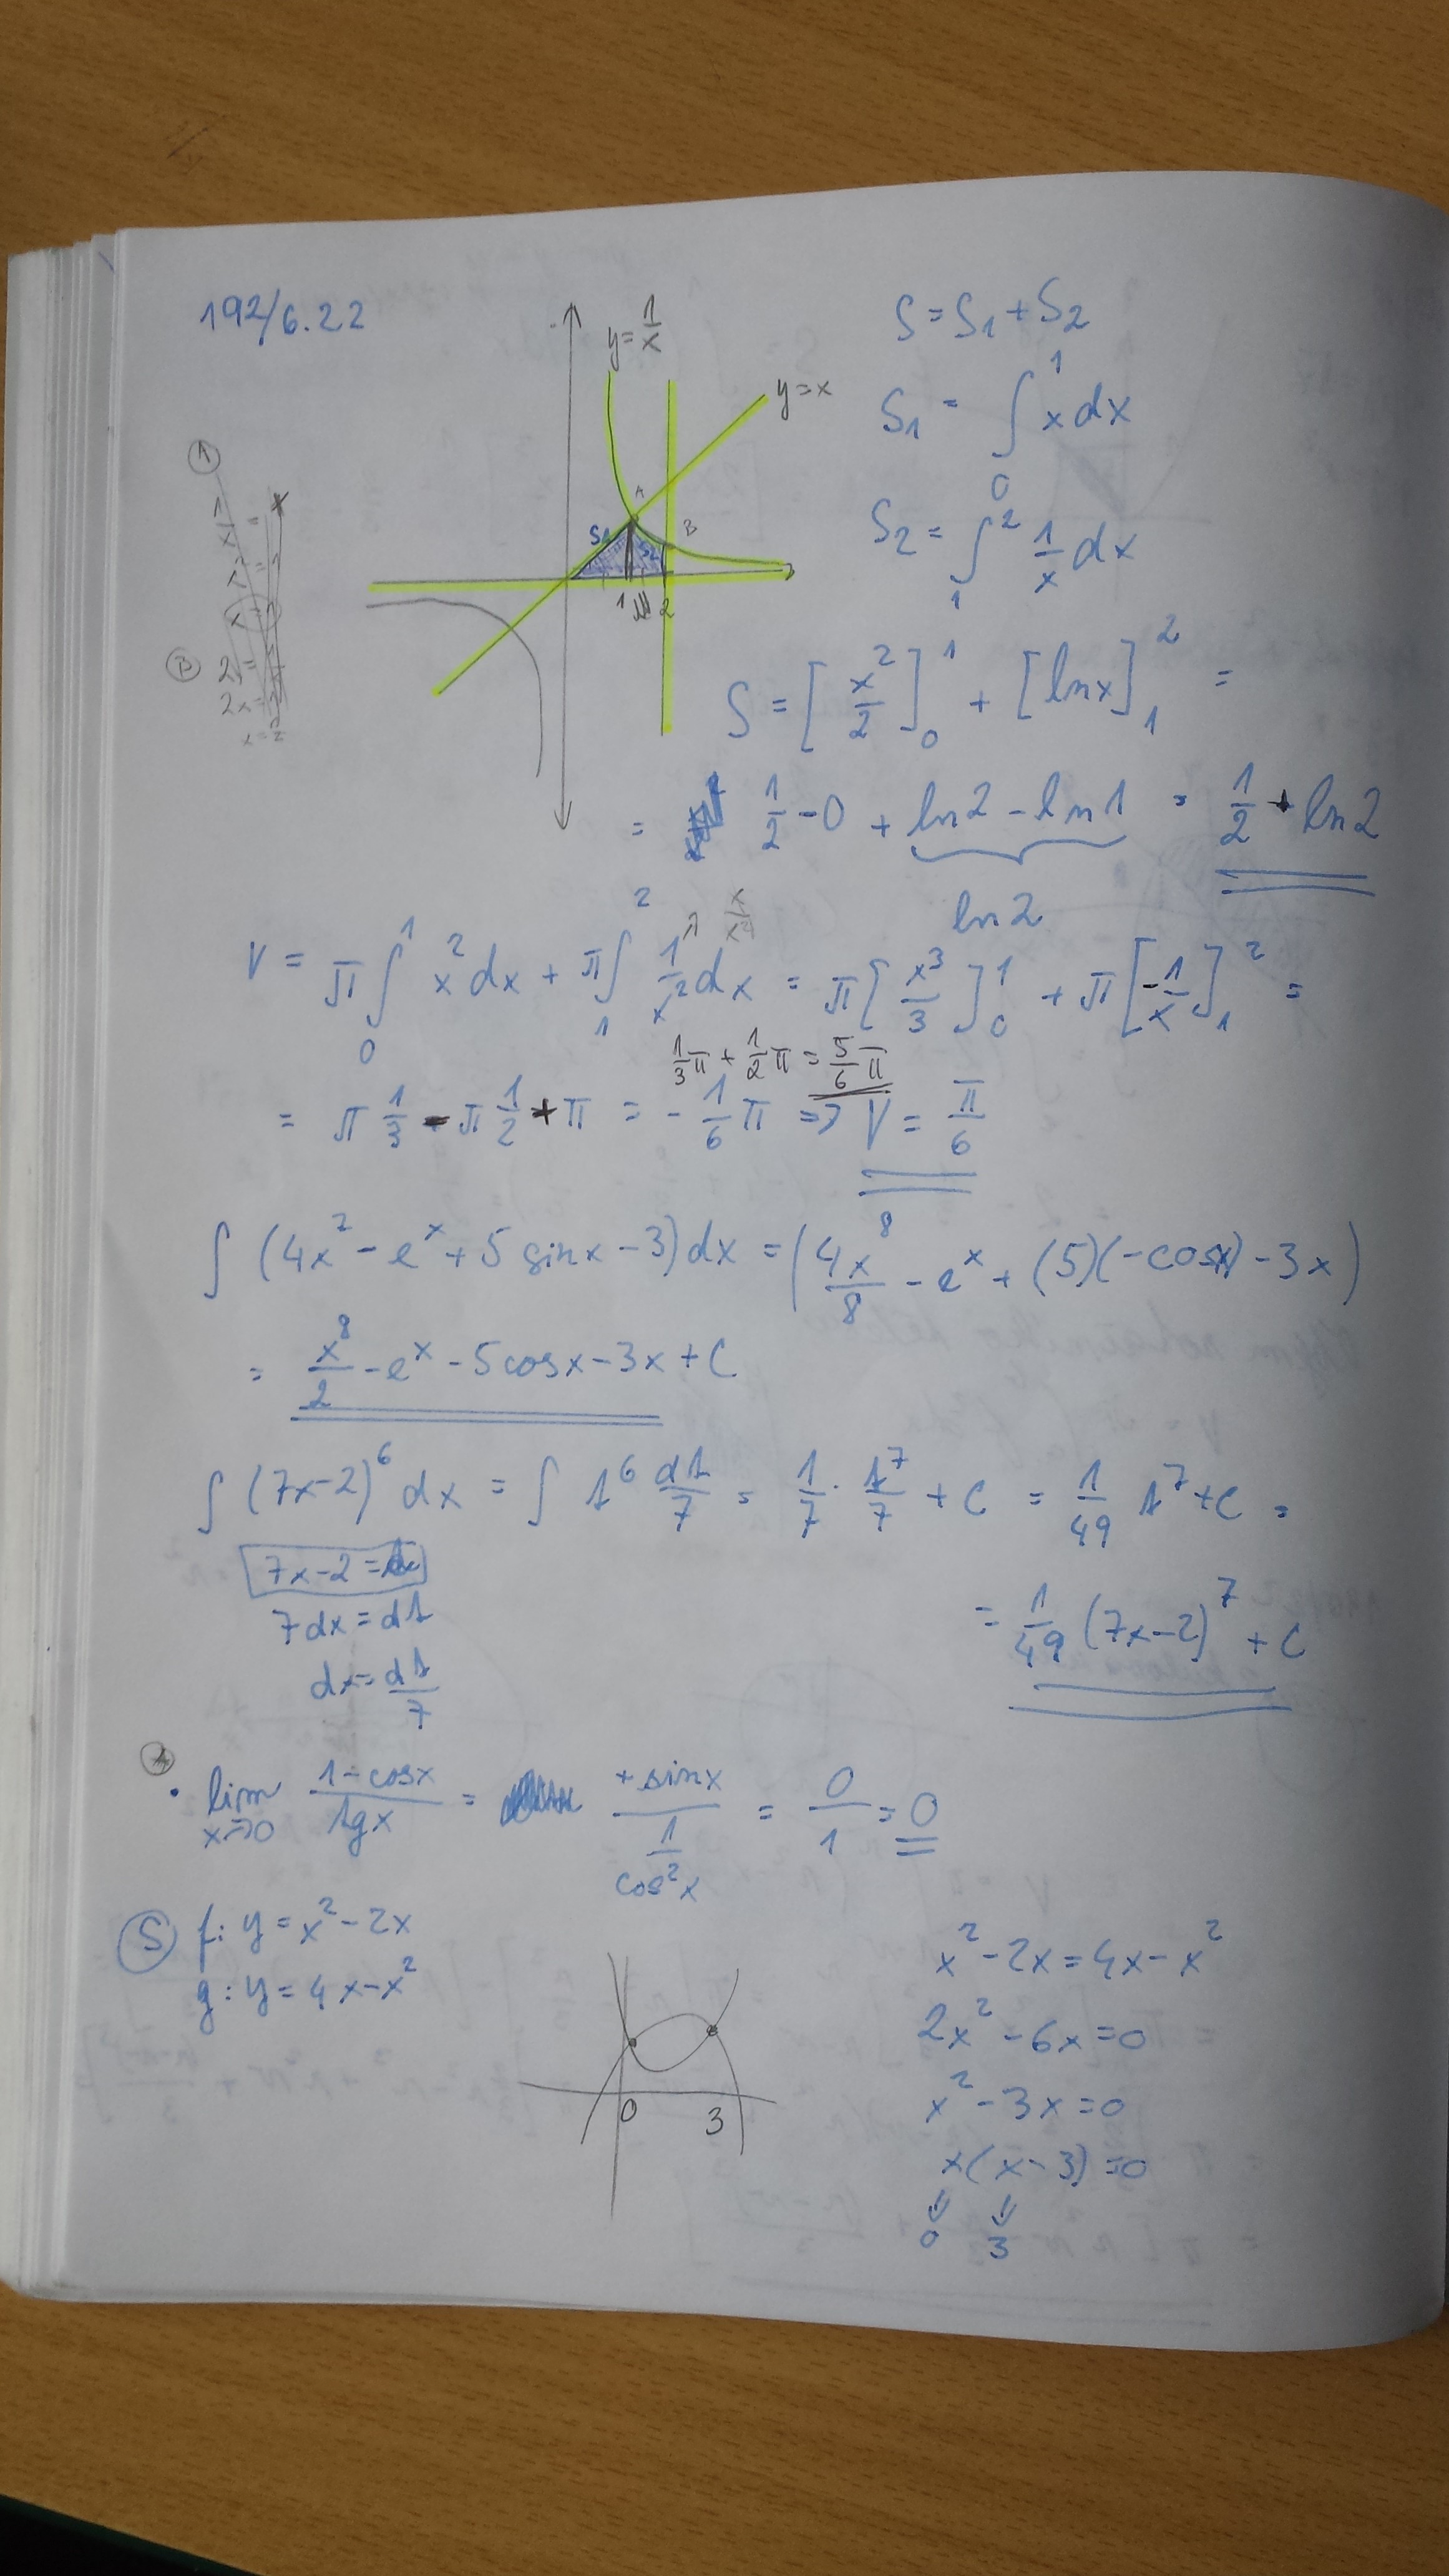 192/6.22
y = 1/x
y = x
A
B
S1
S2
1
2
S = S1 + S2
S1 = ∫₀¹ x dx
S2 = ∫₁² 1/x dx
A
1/x = x
B
S = [x²/2]₀¹ + [ln x]₁² =
= 1/2 - 0 + ln2 - ln1 = 1/2 + ln2
ln2
x/x²
V = π∫₀¹ x² dx + π∫₁² 1/x² dx = π[x³/3]₀¹ + π[-1/x]₁² =
1/3 π + 1/2 π = 5/6 π
= π 1/3 - π 1/2 + π = - 1/6 π => V = π/6
∫ (4x⁷ - eˣ + 5 sinx - 3) dx = (4x⁸/8 - eˣ + (5)(-cosx) - 3x)
= x⁸/2 - eˣ - 5cosx - 3x + C
∫ (7x-2)⁶ dx = ∫ t⁶ dt/7 = 1/7 · t⁷/7 + C = 1/49 t⁷ + C =
7x-2 = t
7dx = dt
dx = dt/7
= 1/49 (7x-2)⁷ + C
4
· lim x→0 (1-cosx)/tgx = +sinx/(1/cos²x) = 0/1 = 0
5 f: y = x² - 2x
g: y = 4x - x²
0
3
x² - 2x = 4x - x²
2x² - 6x = 0
x² - 3x = 0
x(x-3) = 0
⇓ ⇓
0 3